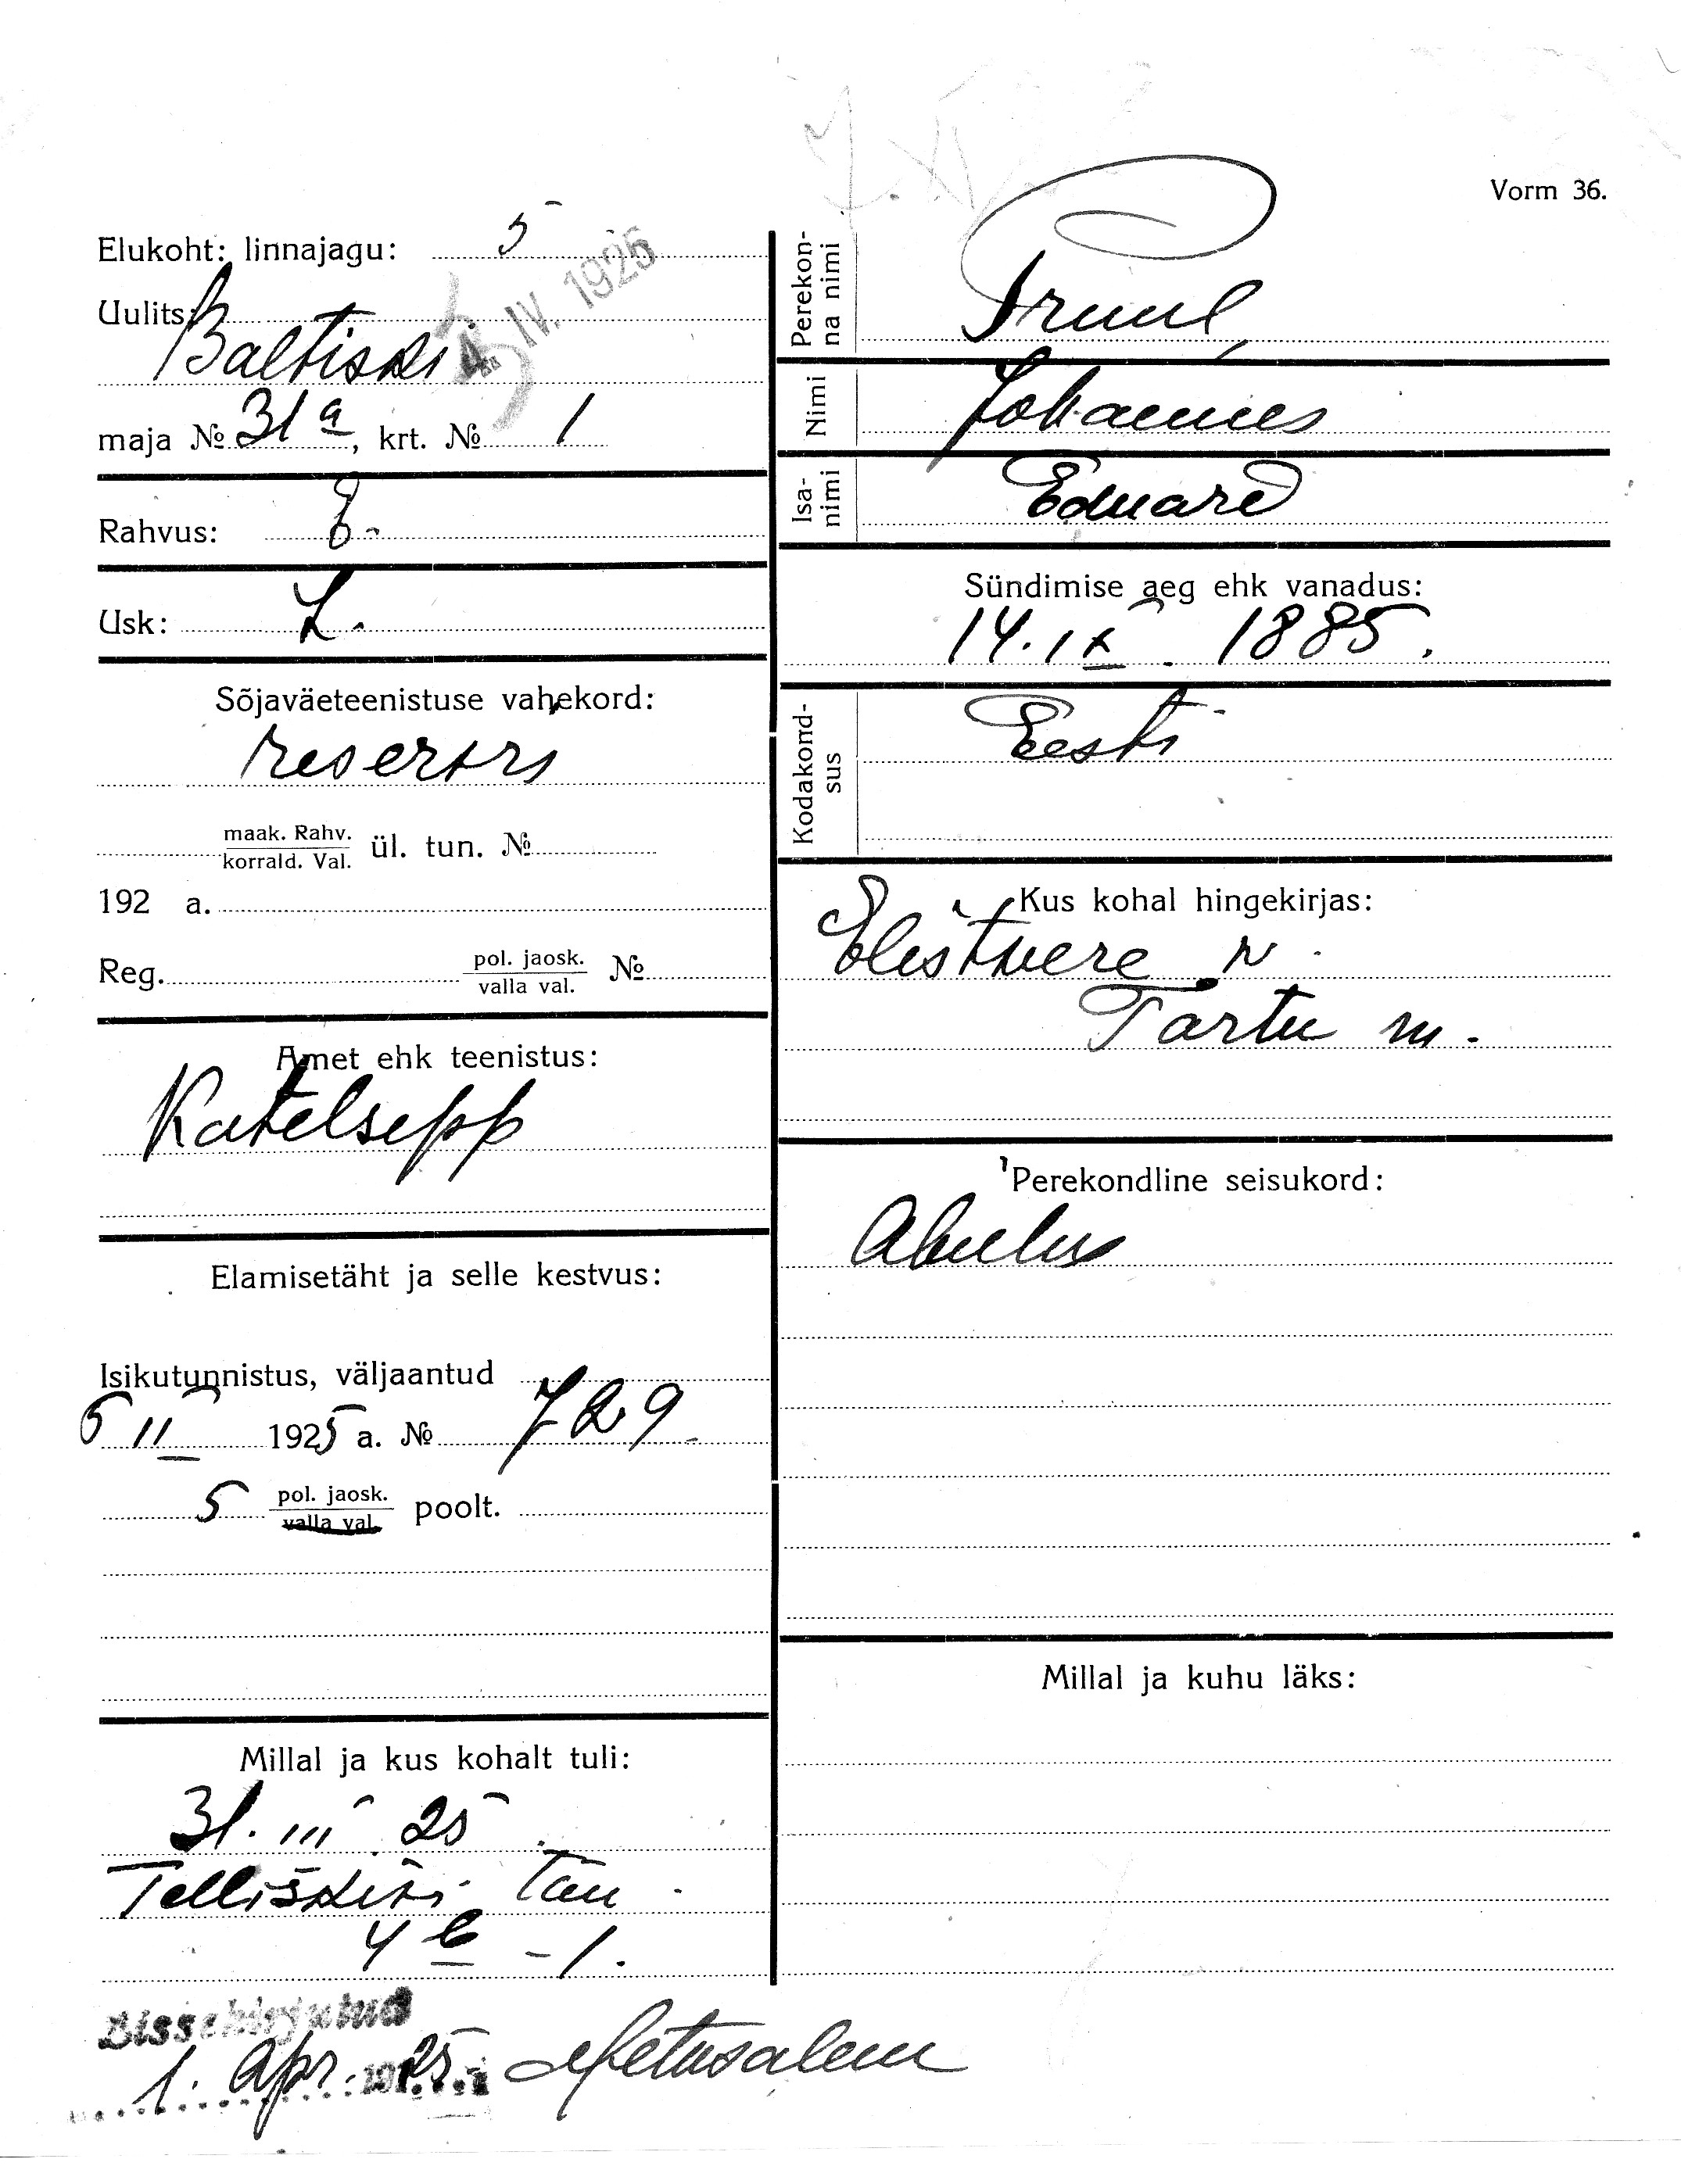 Vorm 36.
Elukoht: linnajagu: 5
Uulits: Baltiski
4. IV. 1925
maja № 31a, krt. № 1
Rahvus: E.
Usk: L.
Sõjaväeteenistuse vahekord:
reservi
maak. Rahv.
korrald. Val. ül. tun. №
192 a.
Reg. pol. jaosk.
valla val. №
Amet ehk teenistus:
Katelsepp
Elamisetäht ja selle kestvus:
Isikutunnistus, väljaantud
5 II 1925 a. № 729
5 pol. jaosk.
valla val. poolt.
Millal ja kus kohalt tuli:
31. III 25
Telliskivi tän.
4 b - 1.
Sissekirjutud
1. Apr. 1925. Metusalem
Perekonna nimi Pruul,
Nimi Johannes
Isanimi Eduard
Sündimise aeg ehk vanadus:
14. IX. 1885.
Kodakondsus Eesti
Kus kohal hingekirjas:
Elistvere v.
Tartu m.
Perekondline seisukord:
Abielus
Millal ja kuhu läks: